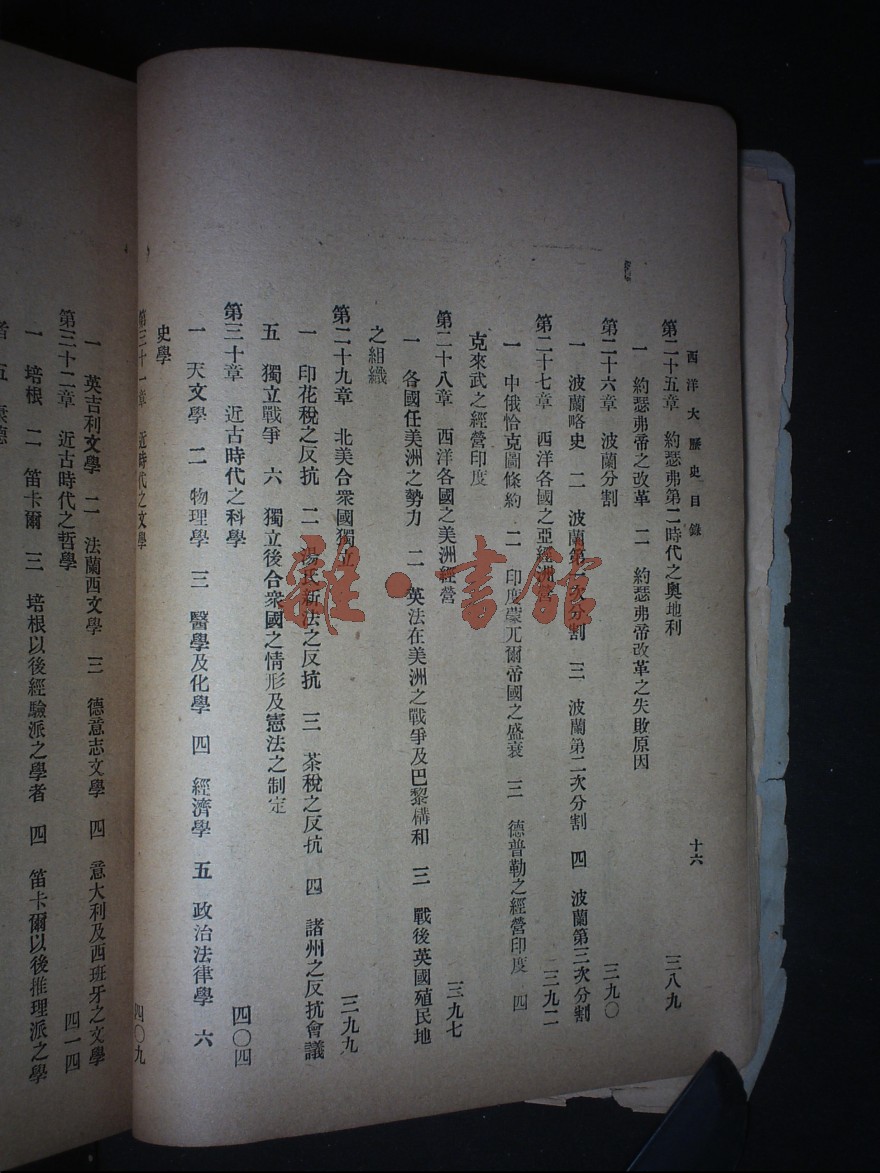 西洋大歷史目錄 十六
第二十五章 約瑟弗第二時代之奧地利 三八九
一 約瑟弗帝之改革 二 約瑟弗帝改革之失敗原因
第二十六章 波蘭分割 三九〇
一 波蘭略史 二 波蘭第一次分割 三 波蘭第二次分割 四 波蘭第三次分割
第二十七章 西洋各國之亞經洲營 三九二
一 中俄恰克圖條約 二 印度蒙兀爾帝國之盛衰 三 德普勒之經營印度 四
克來武之經營印度
第二十八章 西洋各國之美洲經營 三九七
一 各國任美洲之勢力 二 英法在美洲之戰爭及巴黎構和 三 戰後英國殖民地
之組織
第二十九章 北美合衆國獨立 三九九
一 印花稅之反抗 二 湯氏新法之反抗 三 茶稅之反抗 四 諸州之反抗會議
五 獨立戰爭 六 獨立後合衆國之情形及憲法之制定
第三十章 近古時代之科學 四〇四
一 天文學 二 物理學 三 醫學及化學 四 經濟學 五 政治法律學 六
史學
第三十一章 近時代之文學 四〇九
一 英吉利文學 二 法蘭西文學 三 德意志文學 四 意大利及西班牙之文學
第三十二章 近古時代之哲學 四一四
一 培根 二 笛卡爾 三 培根以後經驗派之學者 四 笛卡爾以後推理派之學
者 五 康德
雜·書館